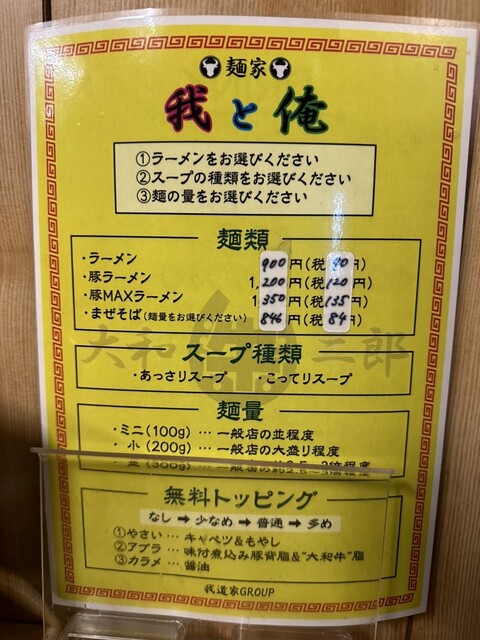 麺家
我と俺
①ラーメンをお選びください
②スープの種類をお選びください
③麺の量をお選びください
麺類
・ラーメン 900円(税90円)
・豚ラーメン 1,200円(税120円)
・豚MAXラーメン 1,350円(税135円)
・まぜそば(麺量をお選びください) 846円(税84円)
大和 三郎
スープ種類
・あっさりスープ ・こってりスープ
麺量
・ミニ(100g)…一般店の並程度
・小(200g)…一般店の大盛り程度
・並(300g)…一般店の約2.5~3倍程度
無料トッピング
なし➡少なめ➡普通➡多め
①やさい…キャベツ&もやし
②アブラ…味付煮込み豚背脂&"大和牛"脂
③カラメ…醤油
我道家GROUP